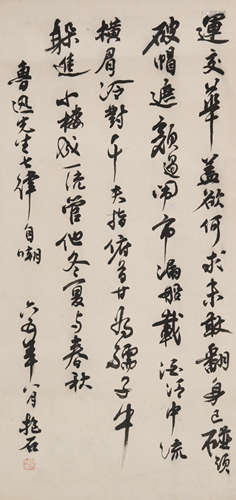 運交華蓋欲何求未敢翻身已碰頭
破帽遮顏過鬧市漏船載酒泛中流
橫眉冷對千夫指俯首甘為孺子牛
躲進小樓成一統管他冬夏與春秋
魯迅先生七律自嘲 六五年八月抱石